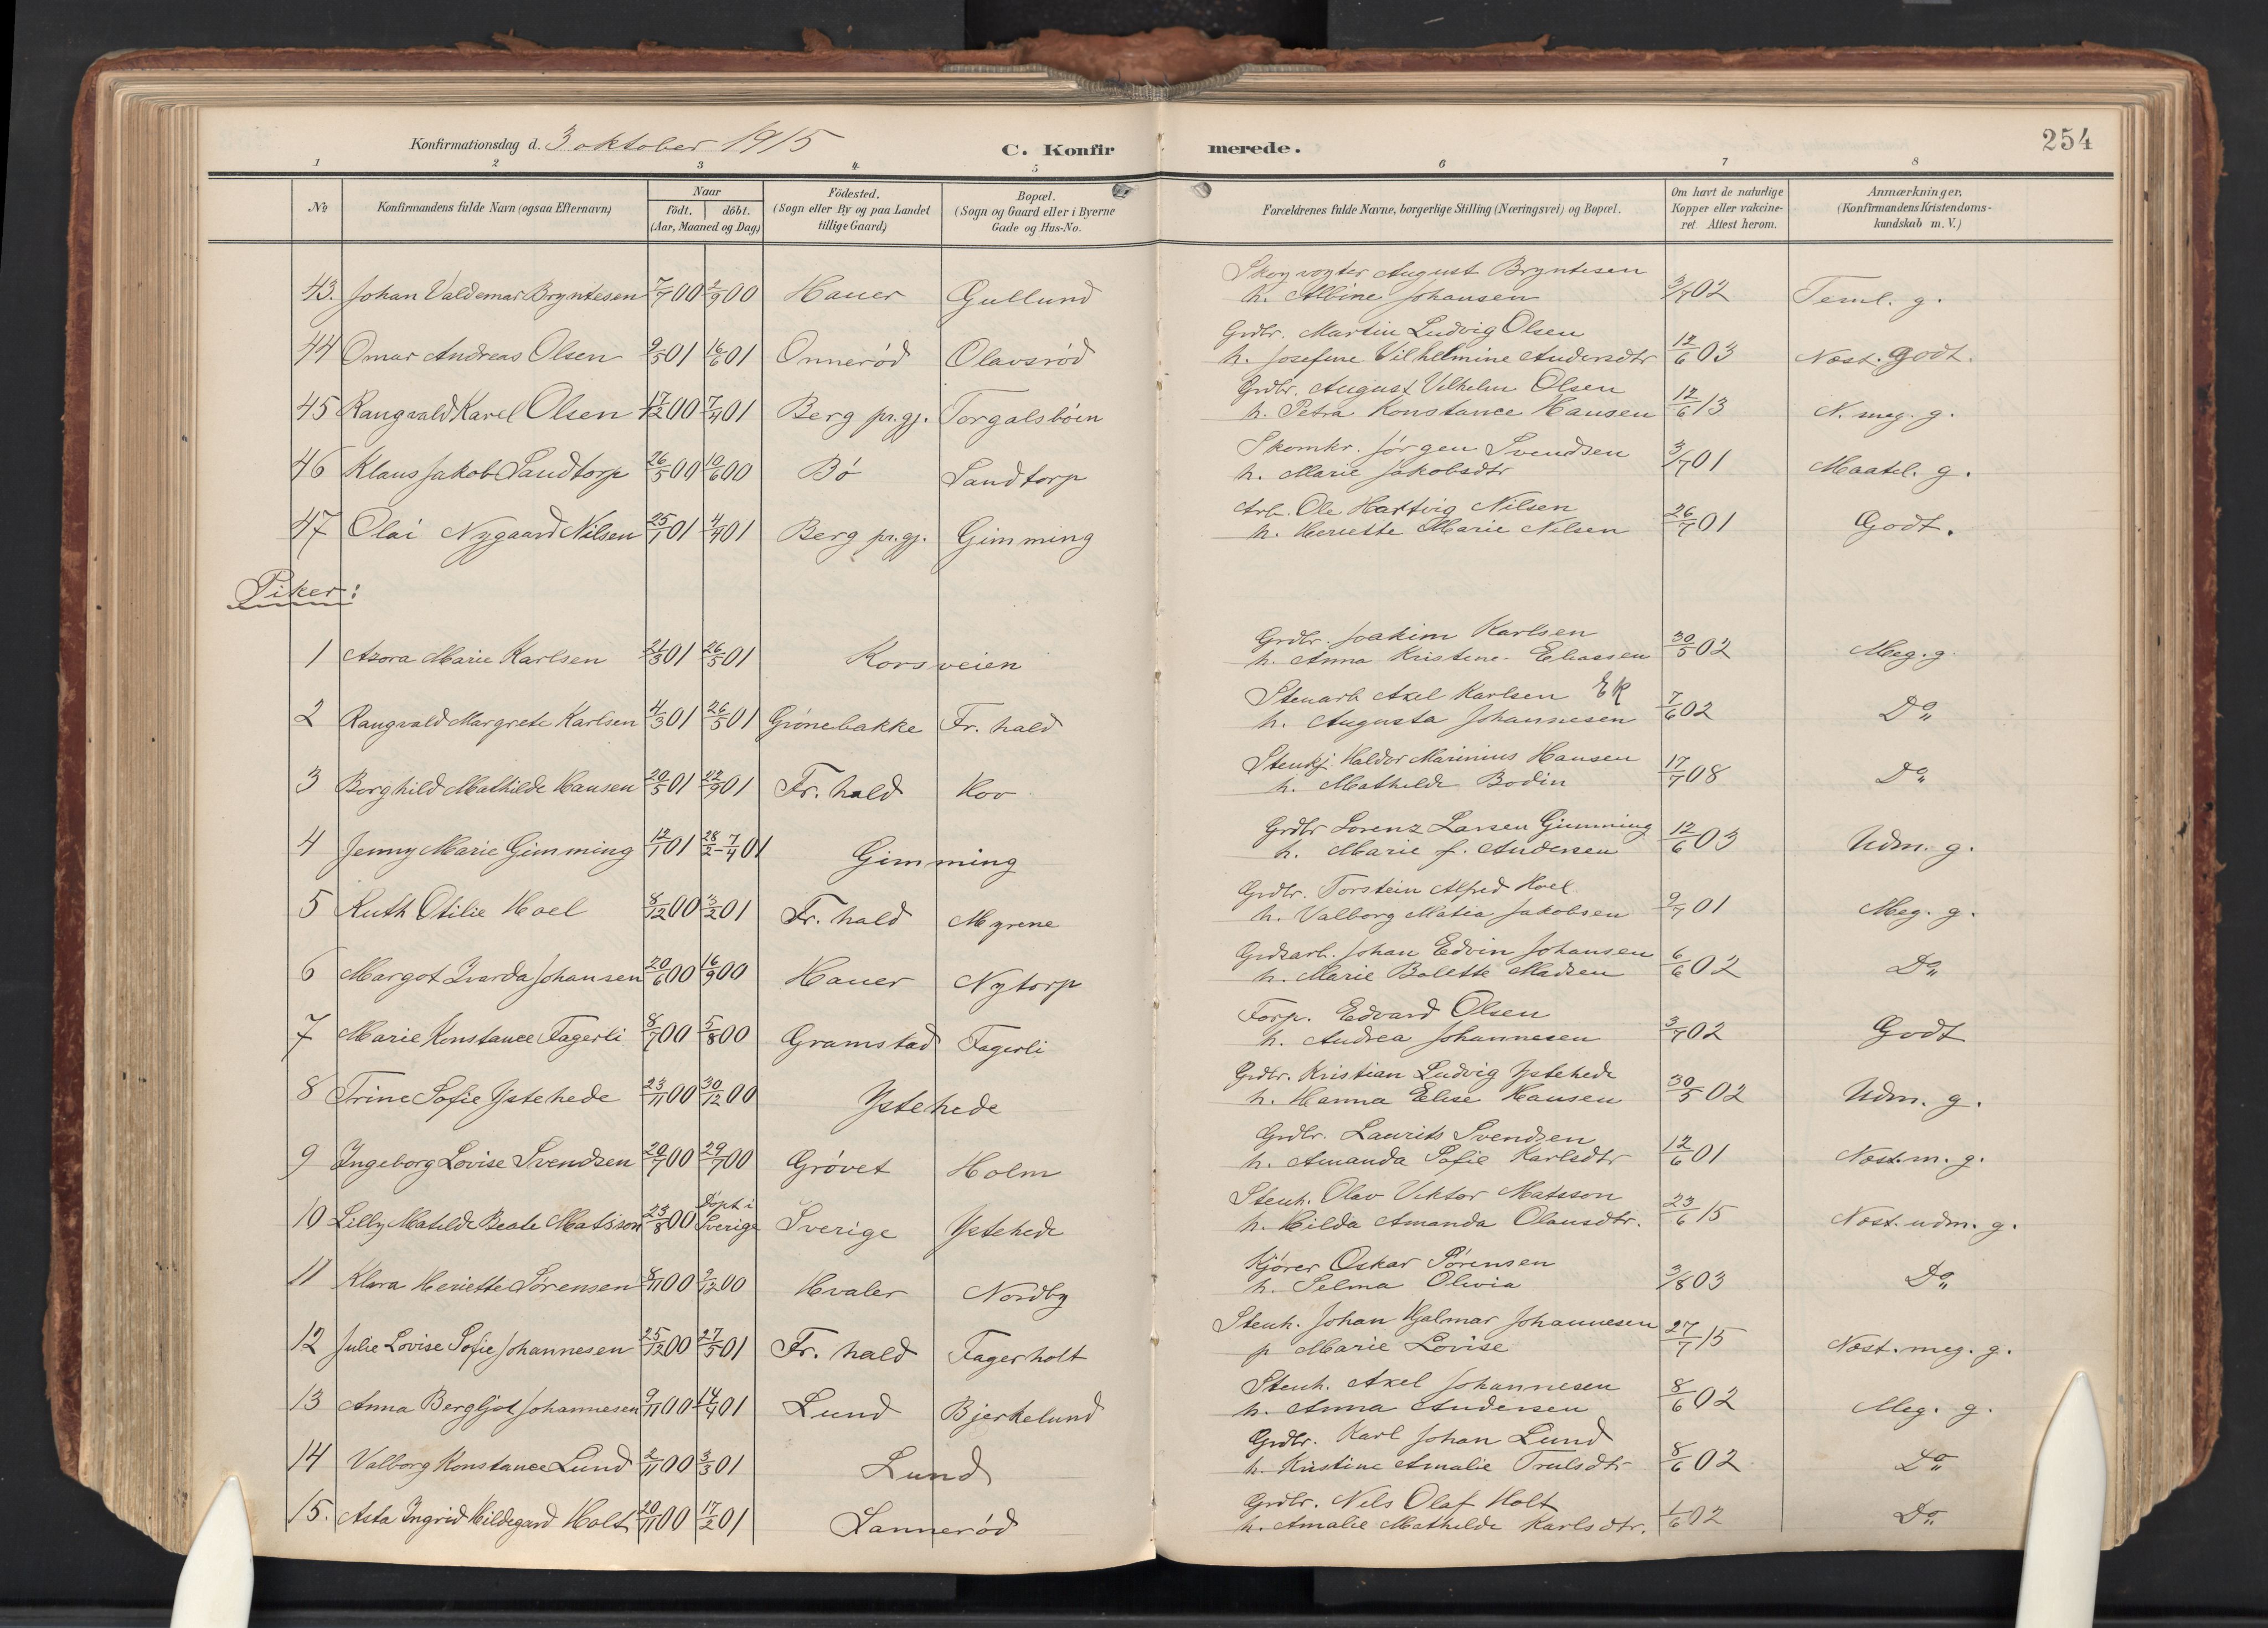 254
Konfirmationsdag d. 3 oktober 1915
C. Konfirmerede.
1 2 3 4 5 6 7 8
No
Konfirmandens fulde Navn (ogsaa Efternavn)
Naar
födt. döbt.
(Aar, Maaned og Dag)
Födested.
(Sogn eller By og paa Landet
tillige Gaard)
Bopæl.
(Sogn og Gaard eller i Byerne
Gade og Hus-No.
Forældrenes fulde Navne, borgerlige Stilling (Næringsvei) og Bopæl.
Om havt de naturlige
Kopper eller vakcine-
ret. Attest herom.
Anmærkninger.
(Konfirmandens Kristendoms-
kundskab m. V.)
Skogvogter August Bryntesen
43. Johan Valdemar Bryntesen 7/7 00 2/9 00 Hauer Gullund h. Albine Johansen 3/7 02 Teml. g.
Grdbr. Martin Ludvig Olsen
44 Omar Andreas Olsen 9/5 01 16/6 01 Onnerød Olavsrød h. Josefine Vilhelmine Andersdtr 12/6 03 Næst. godt.
Grdbr. August Vilhelm Olsen
45 Rangvald Karel Olsen 17/12 00 7/4 01 Berg pr.gj. Torgalsbøen h. Petra Konstance Hansen 12/6 13 N. meg. g.
Skomkr. Jørgen Svendsen
46 Klaus Jakob Sandtorp 26/5 00 10/6 00 Bø Sandtorp h. Marie Jakobsdtr 3/7 01 Maatel. g.
Arb. Ole Hartvig Nilsen
47 Olai Nygaard Nilsen 25/1 01 4/4 01 Berg pr.gj. Gimming h. Henriette Marie Nilsen 26/7 01 Godt.
Piker:
Grdbr. Joakim Karlsen
1 Azora Marie Karlsen 21/3 01 26/5 01 Korsveien h. Anna Kristine Eliassen 30/5 02 Meg. g.
Stenarb Axel Karlsen EK
2 Rangvald Margrete Karlsen 4/3 01 26/5 01 Grønebakke Fr. hald h. Augusta Johannesen 7/6 02 Do
Stenhj. Haldor Marinius Hansen
3 Borghild Mathilde Hansen 20/5 01 22/9 01 Fr. hald Kov h. Mathilde Bodin 17/7 08 Do
Grdbr Lorenz Larsen Gimming
4 Jenny Marie Gimming 12/1 01 28/2-7/4 01 Gimming h. Marie f. Andersen 12/6 03 Udm. g.
Grdbr. Torstein Alfred Hoel
5 Ruth Otilie Hoel 8/12 00 3/2 01 Fr. hald Myrene h. Valborg Matia Jakobsen 9/7 01 Meg. g.
Grdsarb. Johan Edvin Johansen
6 Margot Ivarda Johansen 20/6 00 16/9 00 Hauer Nytorp h. Marie Bolette Madsen 6/6 02 Do
Forp. Edvard Olsen
7 Marie Konstance Fagerli 8/7 00 5/8 00 Gramstad Fagerli h. Andrea Johannesen 3/7 02 Godt
Grdbr. Kristian Ludvig Ystehede
8 Trine Sofie Ystehede 23/11 00 30/12 00 Ystehede h. Hanna Elise Hansen 30/5 02 Udm. g.
Grdbr. Laurits Svendsen
9 Ingeborg Lovise Svendsen 20/7 00 29/7 00 Grøvet Holm h. Amanda Sofie Karlsdtr 12/6 01 Næst. m. g.
Stenh. Olav Viktor Matsson
10 Lilly Matilde Beate Matsson 23/8 00 Døpt i Sverige Sverige Ystehede h. Hilda Amanda Olausdtr. 23/6 15 Næst. udm. g.
Kjører Oskar Sørensen
11 Klara Heriette Sørensen 8/11 00 9/12 00 Hvaler Nordby h. Selma Olivia 3/8 03 Do
Stenh. Johan Hjalmar Johannesen
12 Julie Lovise Sofie Johannesen 25/12 00 27/5 01 Fr. hald Fagerholt p Marie Lovise 27/7 15 Næst. meg. g.
Stenh. Axel Johannesen
13 Anna Bergljot Johannesen 9/11 00 14/4 01 Lund Bjerkelund h. Anna Andersen 8/6 02 Meg. g.
Grdbr. Karl Johan Lund
14 Valborg Konstance Lund 2/11 00 3/3 01 Lund h. Kristine Amalie Trulsdtr 8/6 02 Do
Grdbr. Nils Olaf Holt
15. Asta Ingrid Hildegard Holt 20/11 00 17/2 01 Lannerød h. Amalie Mathilde Karlsdtr. 1/6 02 Do